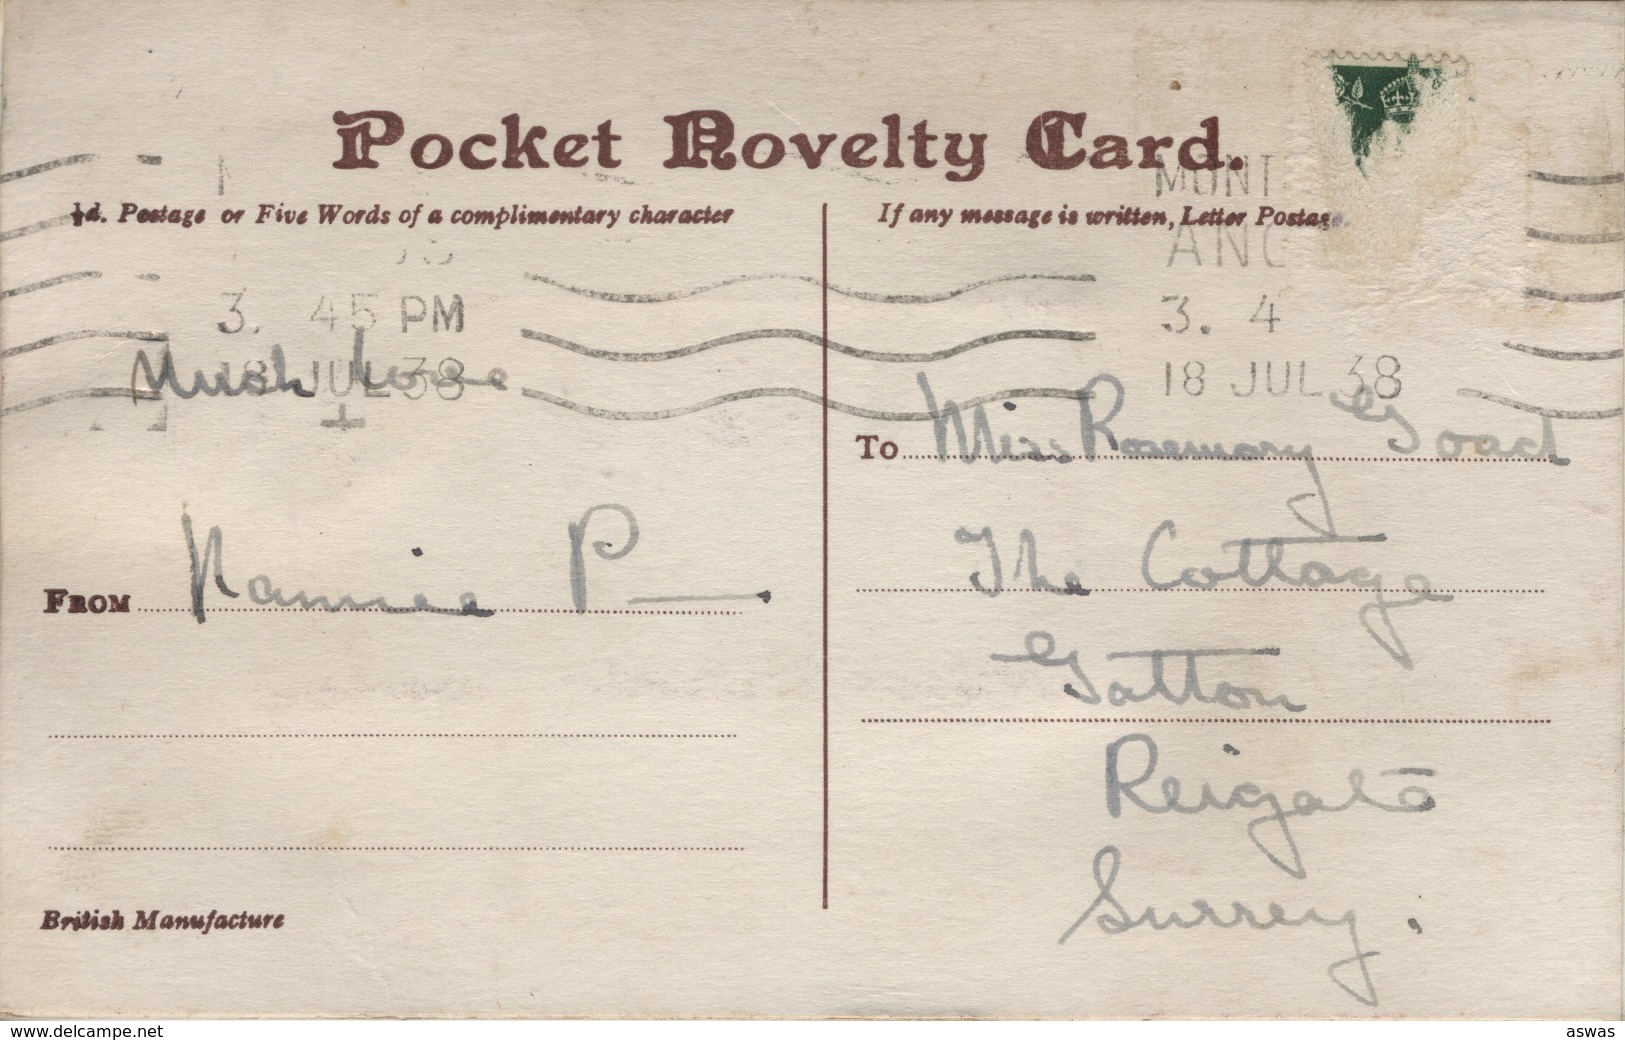 Pocket Novelty Card.
½d. Postage or Five Words of a complimentary character
If any message is written, Letter Postage.
3. 45 PM
18 JUL 38
3. 4
18 JUL 38
Much love
To Miss Rosemary Goad
The Cottage
Gatton
Reigate
Surrey.
FROM Nannie P
British Manufacture
www.delcampe.net
aswas